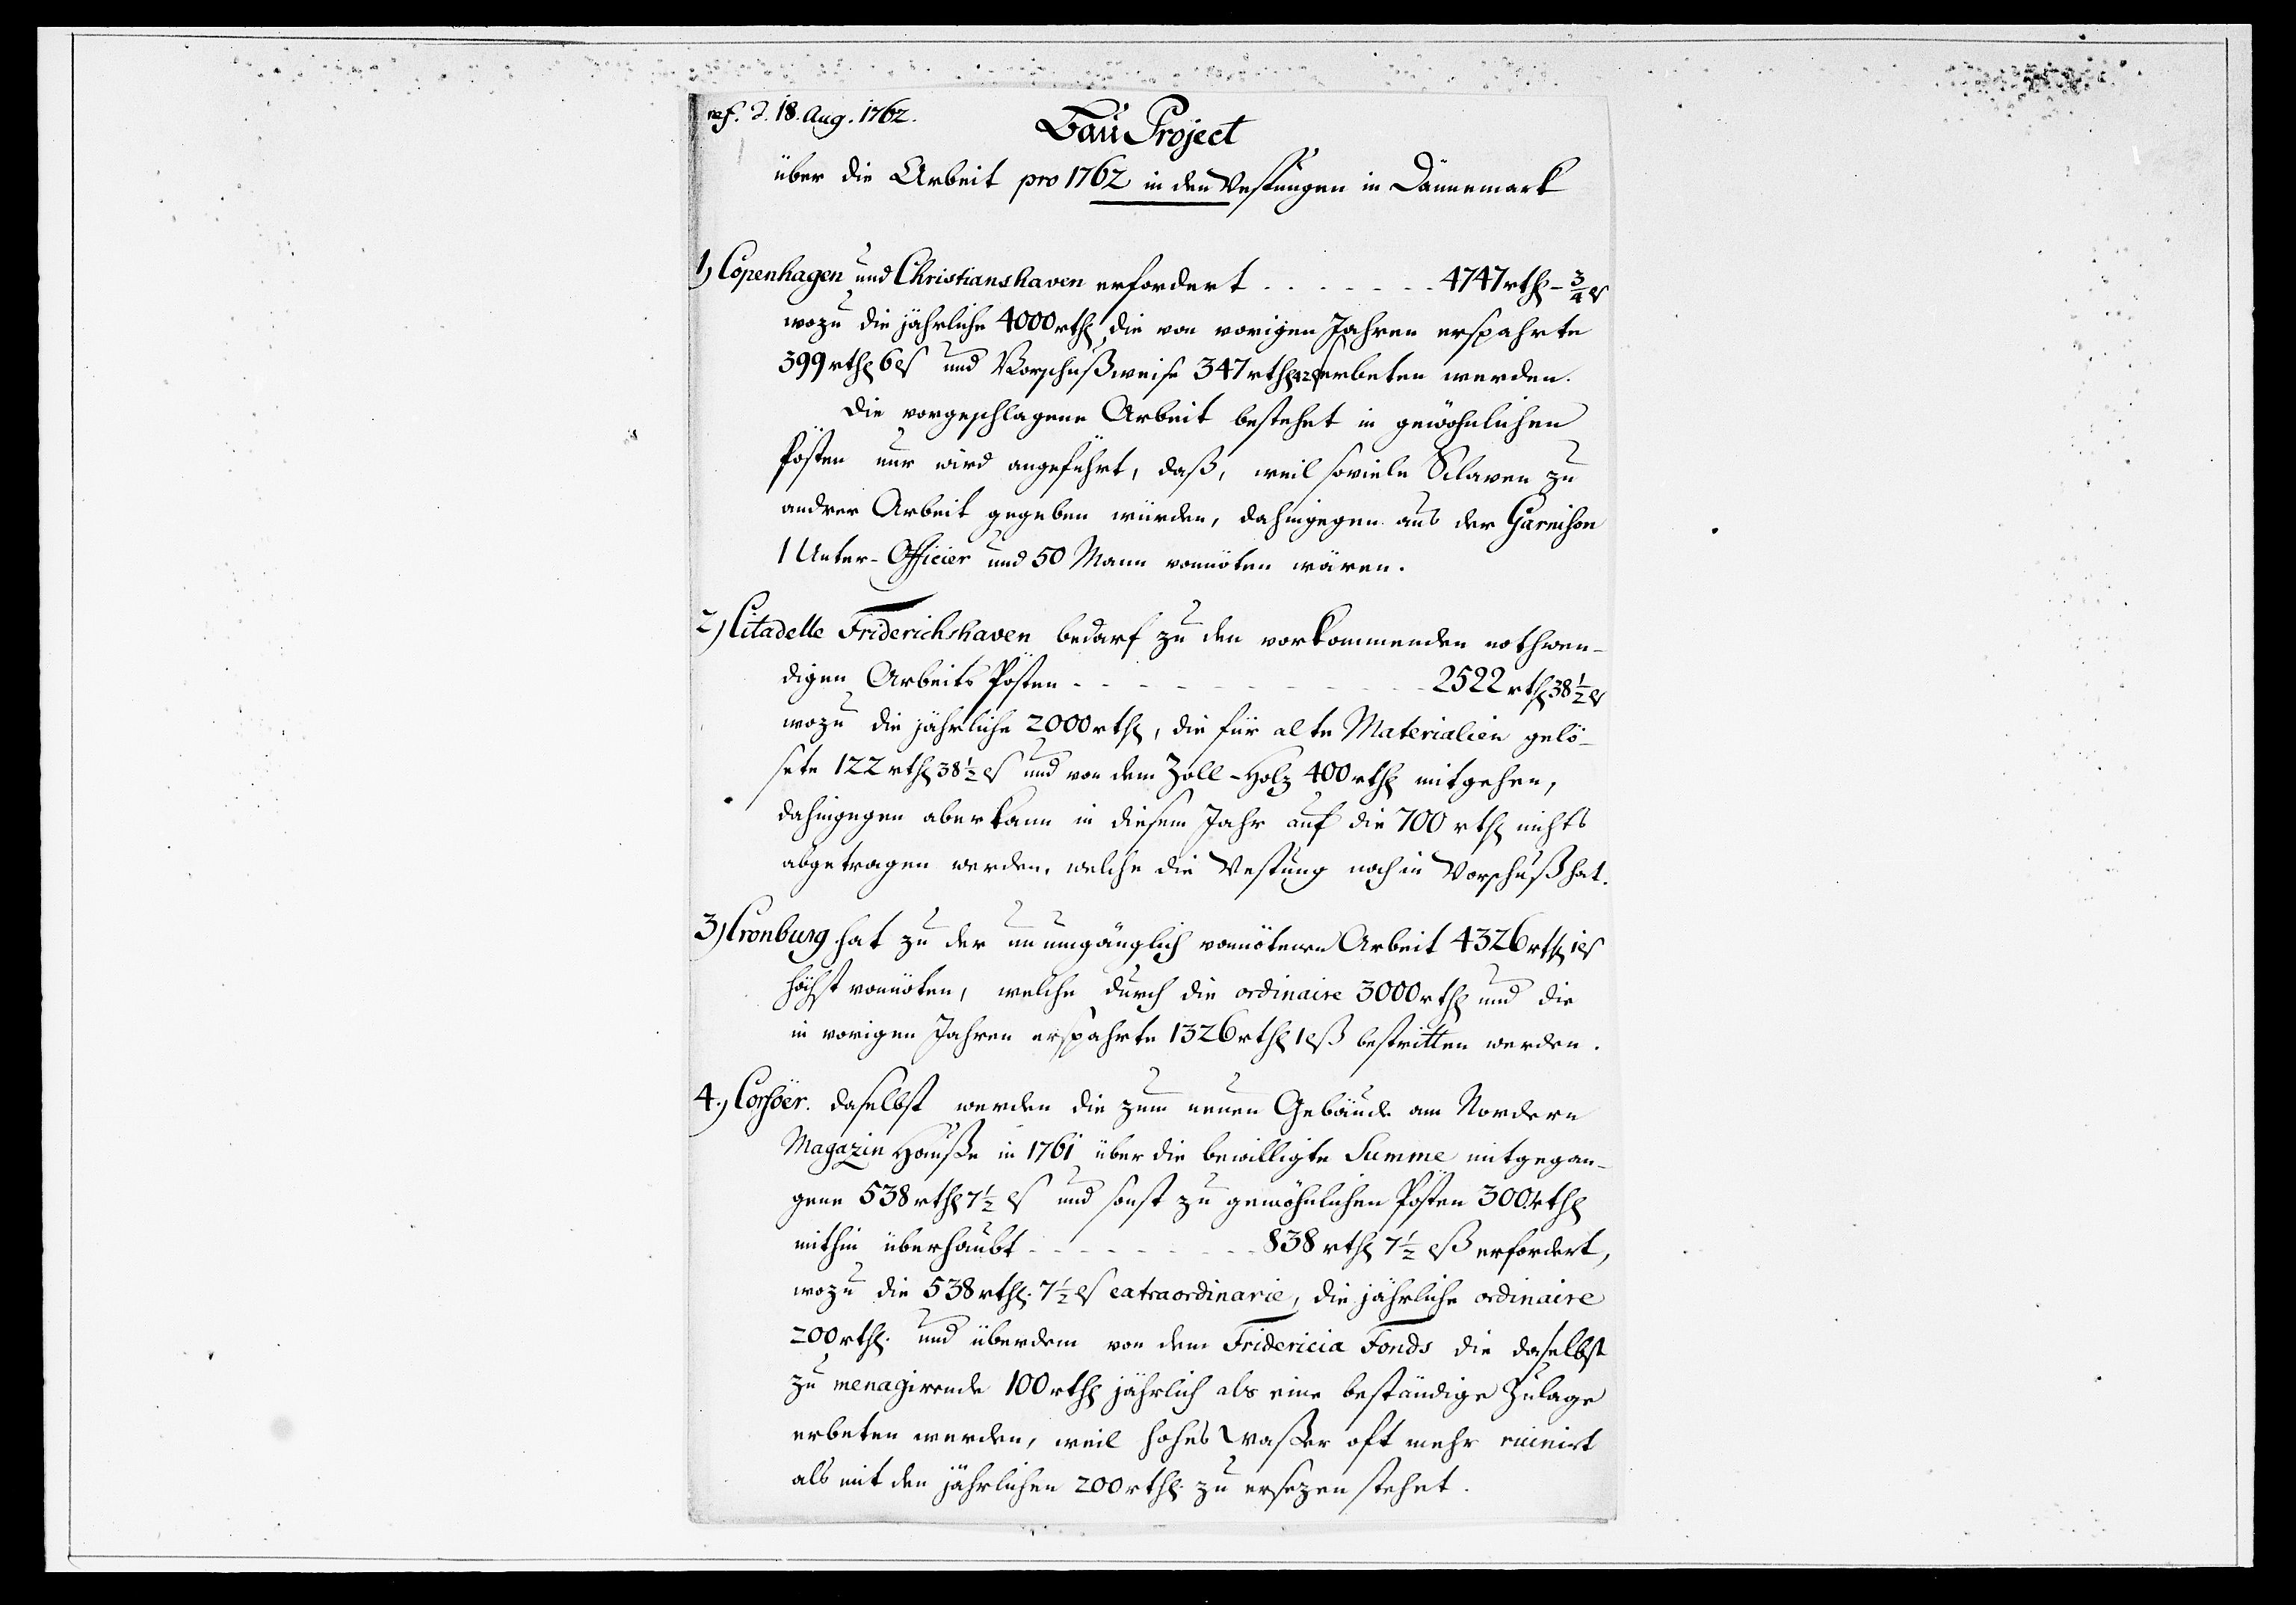 ref. d. 18. Aug. 1762.
Bau Project
über die Arbeit pro 1762 in den Vestungen in Dännemark
1) Copenhagen und Christianshaven erfordert . . . . . . . 4747 rthl - 3/4 ß
wozu die jährliche 4000 rthl, die von vorigen Jahren ersparhte
399 rthl 6 ß und Vorschußweise 347 rthl 42 ß erbeten werden.
Die vorgeschlagene Arbeit bestehet in gewöhnlichen
Pösten nur wird angeführt, daß, weil soviele Sclaven zu
andrer Arbeit gegeben würden, dahingegen aus der Garnison
1 Unter-Officier und 50 Mann vonnöten wären.
2) Citadelle Friderichshaven bedarf zu den vorkommenden nothwen-
digen Arbeits Pösten - - - - - - - - - 2522 rthl 38 1/2 ß
wozu die jährliche 2000 rthl, die für alte Materialien gelö-
sete 122 rthl 38 1/2 ß und von dem Zoll-Holz 400 rthl mitgehen,
dahingegen aber kann in diesem Jahr auf die 700 rthl nichts
abgetragen werden, welche die Vestung noch in Vorschuß hat.
3) Cronburg hat zu der unumgänglich vonnötenen Arbeit 4326 rthl 1 ß
höchst vonnöten, welche durch die ordinaire 3000 rthl und die
in vorigen Jahren ersparhte 1326 rthl 1 ß bestritten werden.
4.) Corsöer. daselbst werden die zum neuen Gebäude am Nordern
Magazin Hauße in 1761 über die bewilligte Summe mitgegan-
gene 538 rthl 7 1/2 ß und sonst zu gewöhnlichen Pösten 300 rthl
mithin überhaubt - - - - - - - - 838 rthl 7 1/2 ß erfordert,
wozu die 538 rthl. 7 1/2 ß extraordinarie, die jährliche ordinaire
200 rthl. und überdem von dem Fridericia Fonds die daselbst
zu menagirende 100 rthl jährlich als eine beständige Zulage
erbeten werden, weil hohes Waßer oft mehr ruinirt
als mit den jährlichen 200 rthl. zu ersezen stehet.